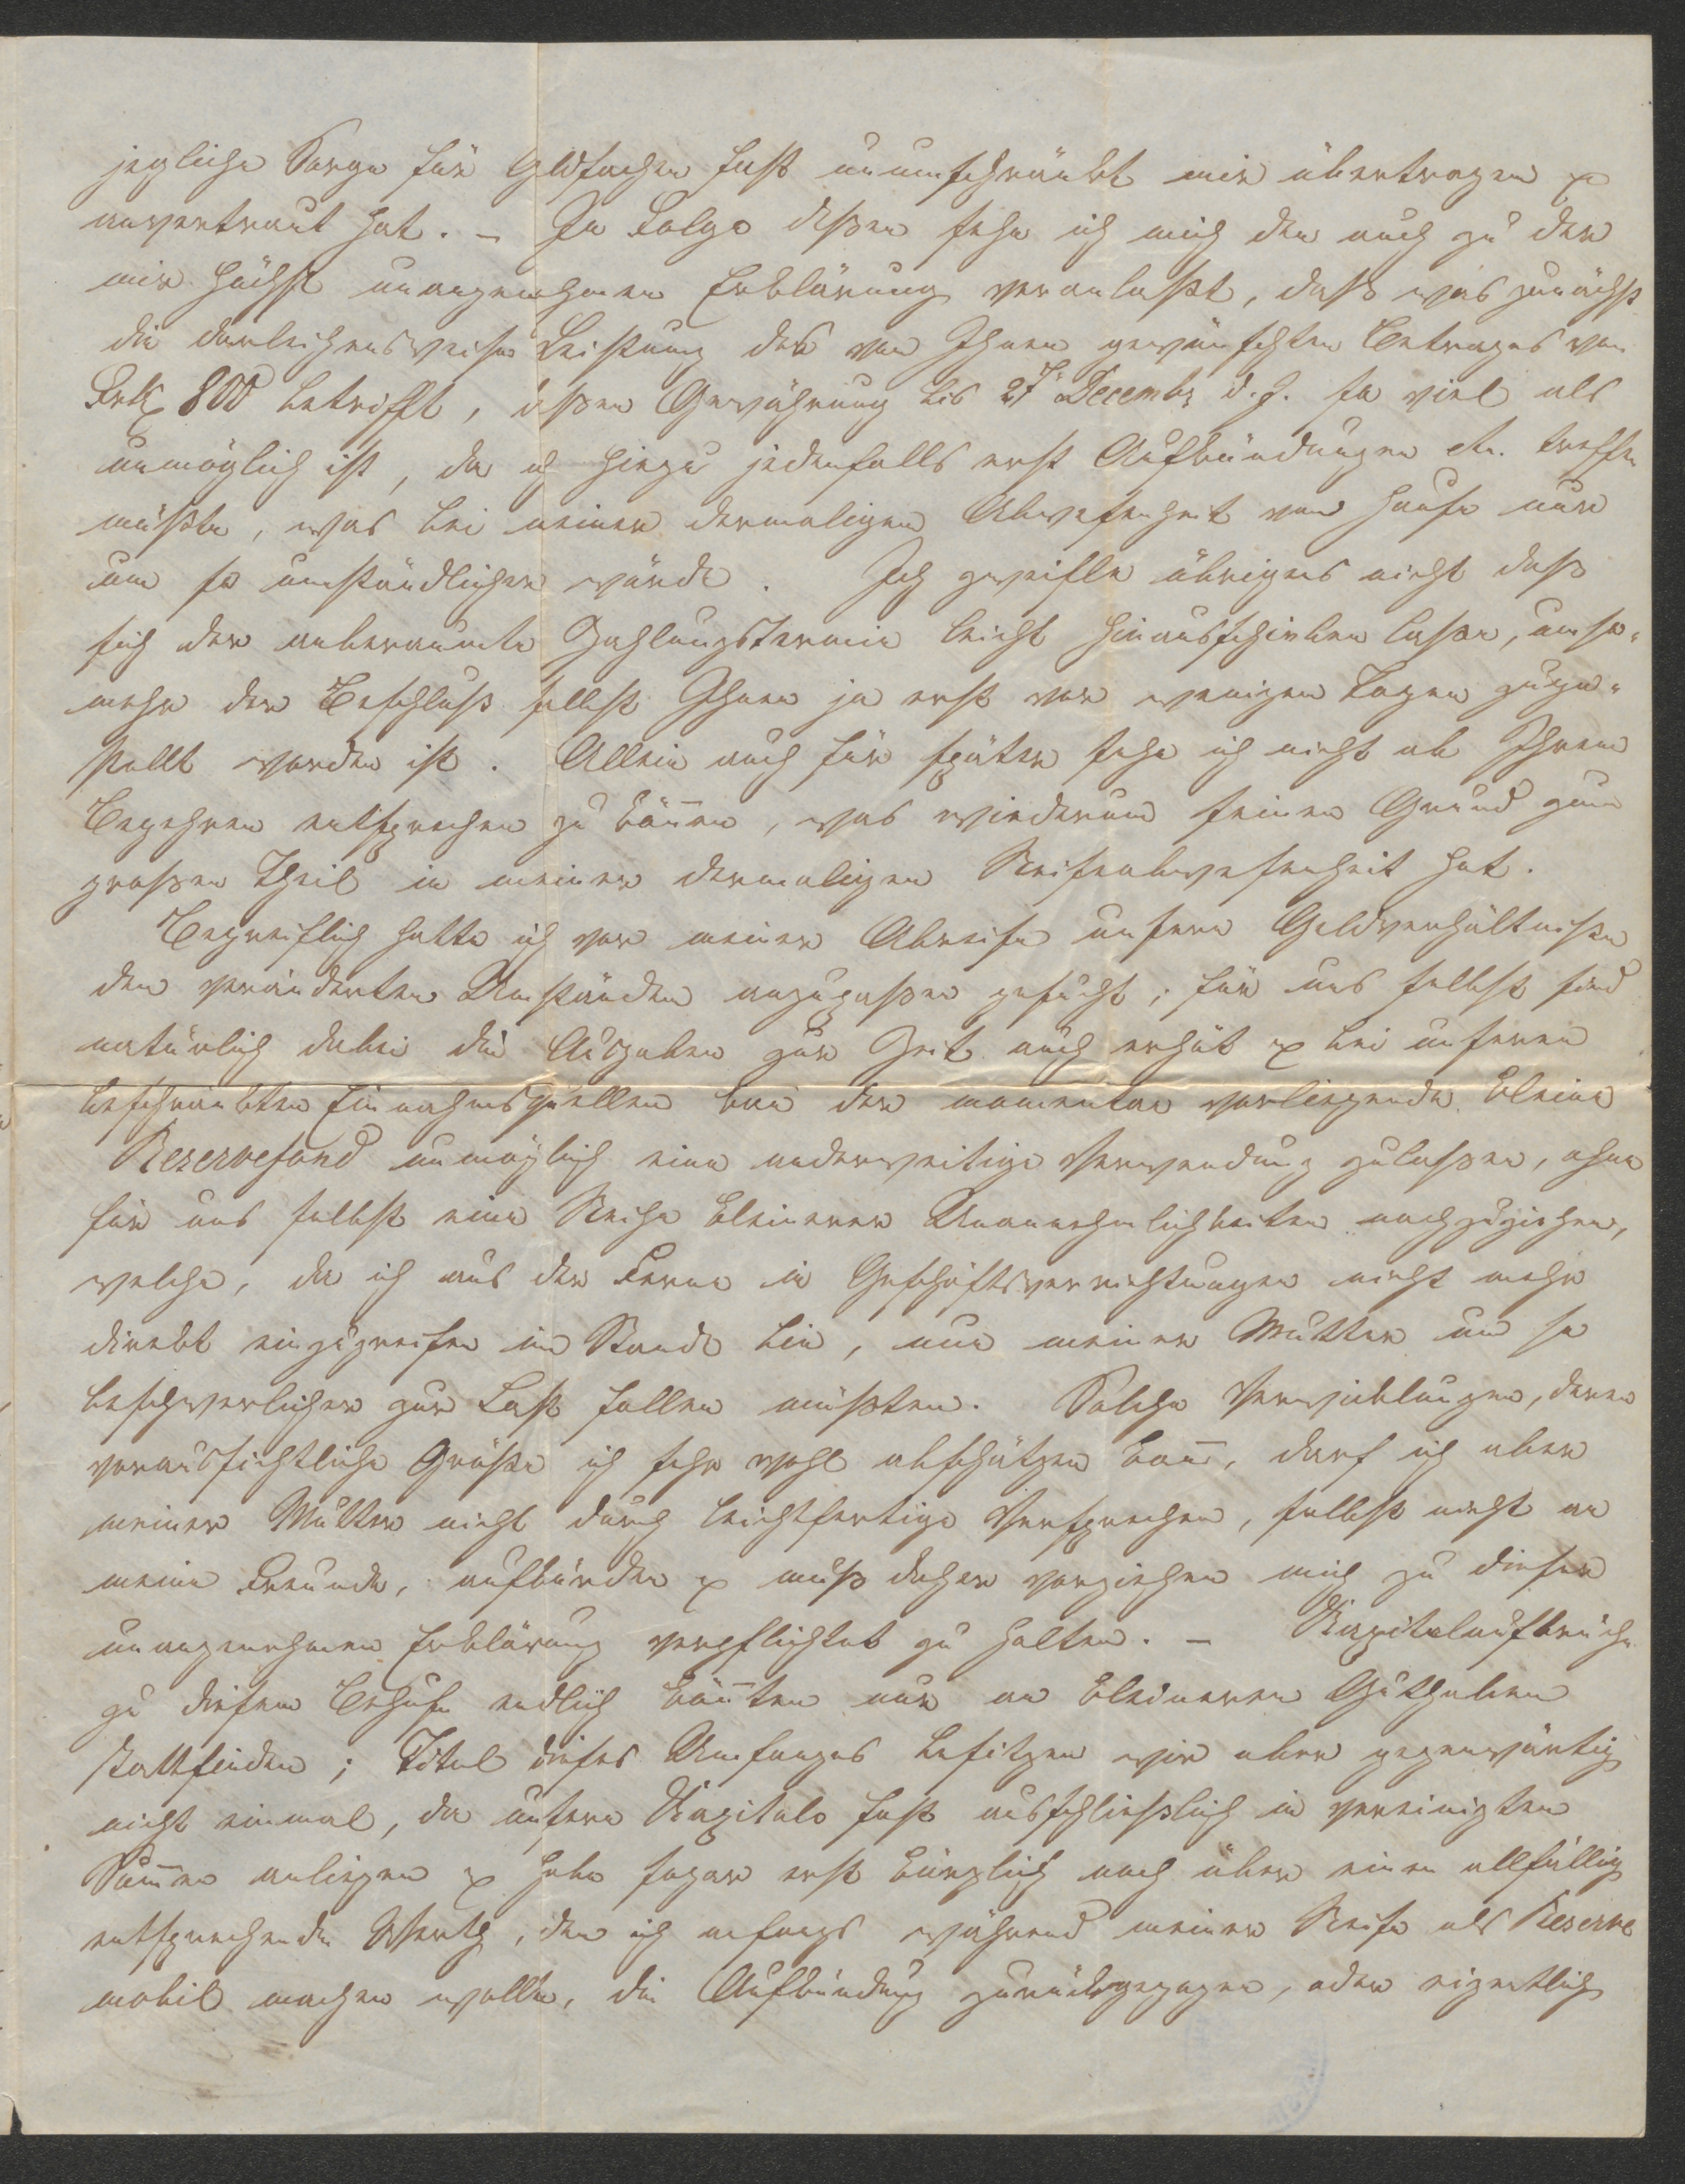 jegliche Sorge für Gldsachen fast unumschränkt mir übertragen &
anvertraut hat. – In Folge dessen sehe ich mich den auch zu der
mir höchst unangenehmen Erklärung veranlaßt, daß was zunächst
die darleihensweise Leistung des von Ihnen gewünschten Betrages von
Frk 800 betrifft, dessen Gewährung bis 27 Decembr d. J. so viel als
unmöglich ist, da ich hiezu jedenfalls erst Aufkündungen etc. treffen
müßte, was bei meiner dermaligen Abwesenheit von Hause nur
um so umständlicher würde. Ich zweifle übrigens nicht daß
sich der anberaumte Zahlungstermin leicht hinausschieben lasse, umso-
mehr der Beschluß selbst Ihnen ja erst vor wenigen Tagen zuge-
stellt worden ist. Allein auch für später sehe ich nicht ab Ihrem
Begehren entsprechen zu können, was wiederum seinen Grund zum
großen Theil in meiner dermaligen Reiseabwesenheit hat.
Begreiflich hatte ich vor meiner Abreise unsere Geldverhältnisse
den veränderten Umständen anzupassen gesucht; für uns selbst sind
natürlich dabei die Ausgaben zur Zeit auch erhöt & bei unseren
beschränkten Einnahmsquellen kan der momentan vorliegende kleine
Reservefond unmöglich eine anderweitige Verwendung zulassen, ohne
für uns selbst eine Reihe kleinerer Unannehmlichkeiten nachzuziehen,
welche, da ich aus der Ferne in Geschäftsverrichtungen nicht mehr
direkt einzugreifen im Stande bin, nur meiner Mutter um so
beschwerlicher zur Last fallen müßten. Solche Verwicklungen, deren
voraussichtliche Größe ich sehr wohl abschätzen kann, darf ich aber
meiner Mutter nicht durch leichtfertige Versprechen, selbst nicht an
meine Freunde, aufbürden & muß daher vorziehen mich zu dieser
unangenehmen Erklärung verpflichtet zu halten. – Kapitalaufbrüche
zu diesem Behufe endlich könnten nur an kleineren Guthaben
stattfinden; Titel dieses Umfanges besitzen wir aber gegenwärtig
nicht einmal, da unsere Kapitale fast ausschließlich in vereinigten
Summen anliegen & habe sogar erst kürzlich noch über einen allfällig
entsprechenden Werth, den ich anfangs während meiner Reise als Reserve
mobil machen wollte, die Aufkündung zurückgezogen, oder eigentlich